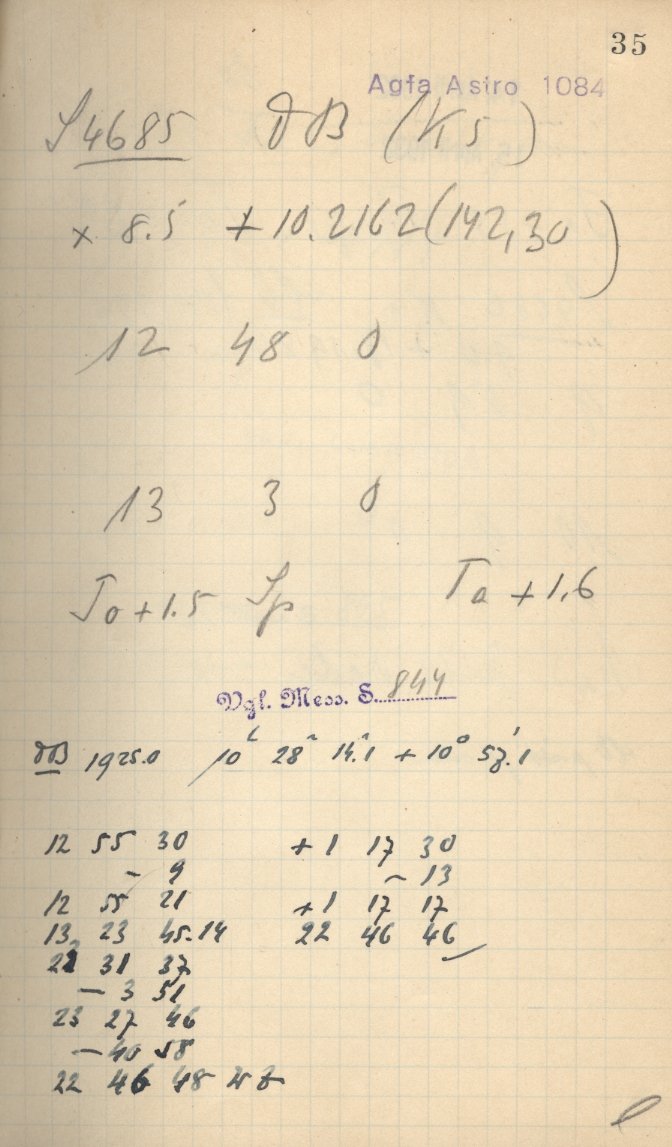 35
Agfa Astro 1084
S 4685 DB (K5)
x 8.5 + 10.2162 (142,30)
12 48 0
13 3 0
To + 1.5 Sp Ta + 1.6
Vgl. Mess. S. 844
DB 1925.0 10 28 14.1 + 10° 57.1
12 55 30 + 1 17 30
- 9 - 13
12 55 21 + 1 17 17
13 23 45.14 22 46 46
31 37
- 3 51
23 27 46
- 40 58
22 46 48